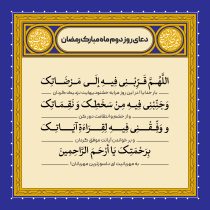 دعای روز دوم ماه مبارک رمضان
اللَّهُمَّ قَرِّبْنِي فِيهِ إِلَى مَرْضَاتِكَ
بار خدایا در این روز مرا به خشنودیهایت نزدیک گردان
وَجَنِّبْنِي فِيهِ مِنْ سَخَطِكَ وَ نَقِمَاتِكَ
و از خشم و انتقامت دور کن
وَ وَفِّقْنِي فِيهِ لِقِرَاءَةِ آيَاتِكَ
و بر خواندن آیاتت موفق گردان
بِرَحْمَتِكَ يَا أَرْحَمَ الرَّاحِمِينَ
به مهربانیت ای دلسوزترین مهربانان!